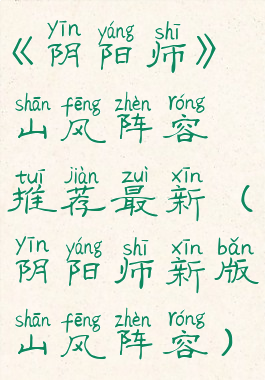 yīn yáng shī
《阴阳师》
shān fēng zhèn róng
山风阵容
tuī jiàn zuì xīn
推荐最新（
yīn yáng shī xīn bǎn
阴阳师新版
shān fēng zhèn róng
山风阵容）